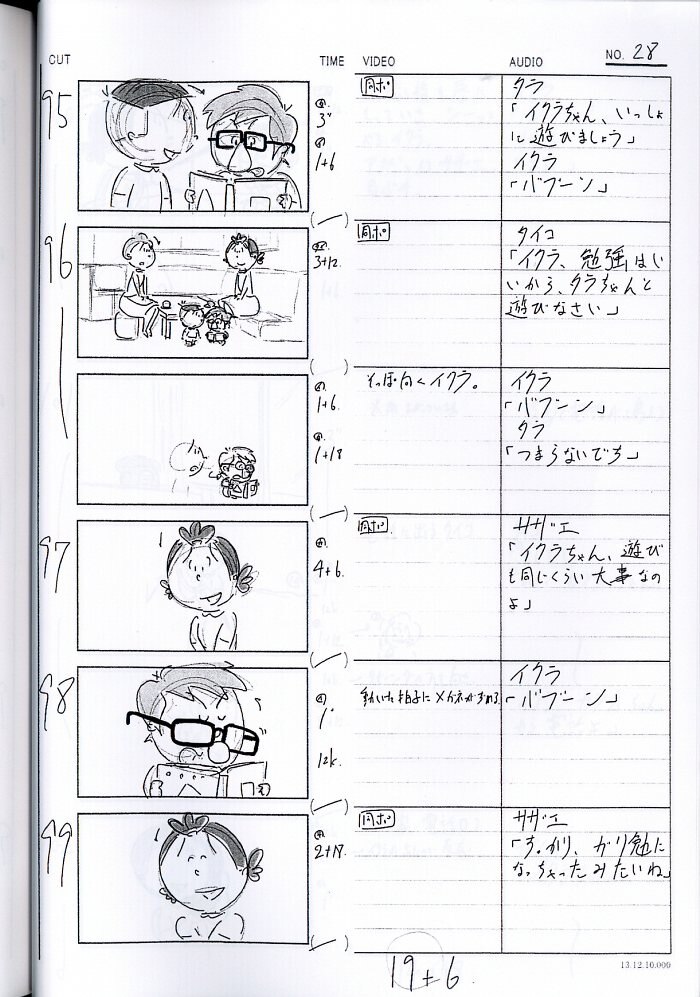 CUT TIME VIDEO AUDIO NO. 28
95
3"
1+6
同ポ
タラ
「イクラちゃん、いっしょ
に遊びましょう」
イクラ
「バブーン」
96
3+12.
同ポ
タイコ
「イクラ、勉強はい
いから、タラちゃんと
遊びなさい」
1+6.
1+18
そっぽ向くイクラ。
イクラ
「バブーン」
タラ
「つまらないでち」
97
4+6.
同ポ
サザエ
「イクラちゃん、遊び
も同じくらい大事なの
よ」
98
12k.
動いた拍子にメガネがずれる
イクラ
「バブーン」
99
2+18.
同ポ
サザエ
「すっかり、ガリ勉に
なっちゃったみたいね」
19+6.
13.12.10.000